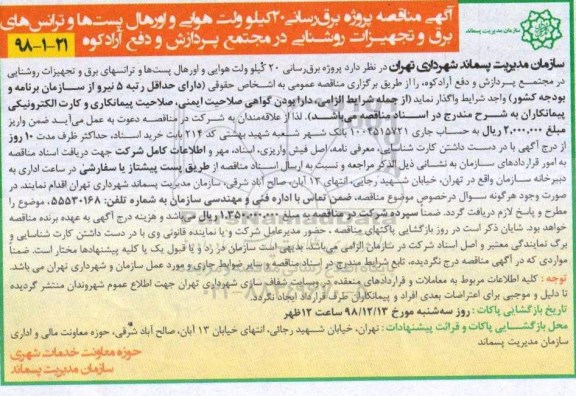 آگهی مناقصه پروژه برق‌رسانی ۲۰کیلو ولت هوایی و اورهال پست‌ها و ترانس‌های
برق و تجهیزات روشنایی در مجتمع پردازش و دفع آرادکوه ۲۱-۱-۹۸
سازمان مدیریت پسماند
سازمان مدیریت پسماند شهرداری تهران در نظر دارد پروژه برق‌رسانی ۲۰ کیلو ولت هوایی و اورهال پست‌ها و ترانسهای برق و تجهیزات روشنایی
در مجتمع پردازش و دفع آرادکوه، را از طریق برگزاری مناقصه عمومی به اشخاص حقوقی (دارای حداقل رتبه ۵ نیرو از سازمان برنامه و
بودجه کشور) واجد شرایط واگذار نماید (از جمله شرایط الزامی: دارا بودن گواهی صلاحیت ایمنی، صلاحیت پیمانکاری و کارت الکترونیکی
پیمانکاران به شرح مندرج در اسناد مناقصه می‌باشد). لذا از علاقه‌مندان به شرکت در مناقصه دعوت به عمل می‌آید ضمن واریز
مبلغ ۲.۰۰۰.۰۰۰ ریال به حساب جاری ۱۰۰۴۵۱۵۷۲۱ بانک شهر شعبه شهید بهشتی کد ۲۱۴ بابت خرید اسناد، حداکثر ظرف مدت ۱۰ روز
از درج آگهی با در دست داشتن کارت شناسایی، معرفی نامه، اصل فیش واریزی، اسناد، مهر و اطلاعات کامل شرکت جهت دریافت اسناد مناقصه
به امور قراردادهای سازمان به نشانی ذیل الذکر مراجعه و نسبت به ارسال اسناد مناقصه از طریق پست پیشتاز یا سفارشی در ساعت اداری به
دبیرخانه سازمان واقع در تهران، خیابان شهید رجایی، انتهای ۱۳ آبان، صالح آباد شرقی، سازمان مدیریت پسماند شهرداری تهران اقدام نمایند. در
صورت وجود هرگونه سوال درخصوص موضوع مناقصه، ضمن تماس با اداره فنی و مهندسی سازمان به شماره تلفن: ۵۵۵۳۰۱۶۸، موضوع را
مطرح و پاسخ لازم دریافت گردد. ضمناً سپرده شرکت در مناقصه به مبلغ ریال می‌باشد و هزینه درج آگهی به عهده برنده مناقصه
خواهد بود. شایان ذکر است در روز بازگشایی پاکتهای مناقصه، حضور مدیرعامل شرکت و یا نماینده قانونی وی با در دست داشتن کارت شناسایی و
برگ نمایندگی معتبر و اصل اسناد شرکت در سازمان الزامی می‌باشد. بدیهی است سازمان در رد و یا قبول یک یا کلیه پیشنهادها مختار است. ضمناً
مواردی که در آگهی مناقصه درج نگردیده، تابع شرایط مندرج در اسناد مناقصه و سایر ضوابط جاری و مورد عمل سازمان و شهرداری تهران می باشد.
توجه : کلیه اطلاعات مربوط به معاملات و قراردادهای منعقده در وبسایت شفاف سازی شهرداری تهران جهت اطلاع عموم شهروندان منتشر گردیده
تا دلیل و موجبی برای اعتراضات بعدی افراد و پیمانکاران طرف قرارداد ایجاد نگردد.
تاریخ بازگشایی پاکات : روز سه‌شنبه مورخ ۹۸/۱۲/۱۳ ساعت ۱۲ظهر
محل بازگشایی پاکات و قرائت پیشنهادات : تهران، خیابان شهید رجائی، انتهای خیابان ۱۳ آبان، صالح آباد شرقی، حوزه معاونت مالی و اداری
سازمان مدیریت پسماند
حوزه معاونت خدمات شهری
سازمان مدیریت پسماند